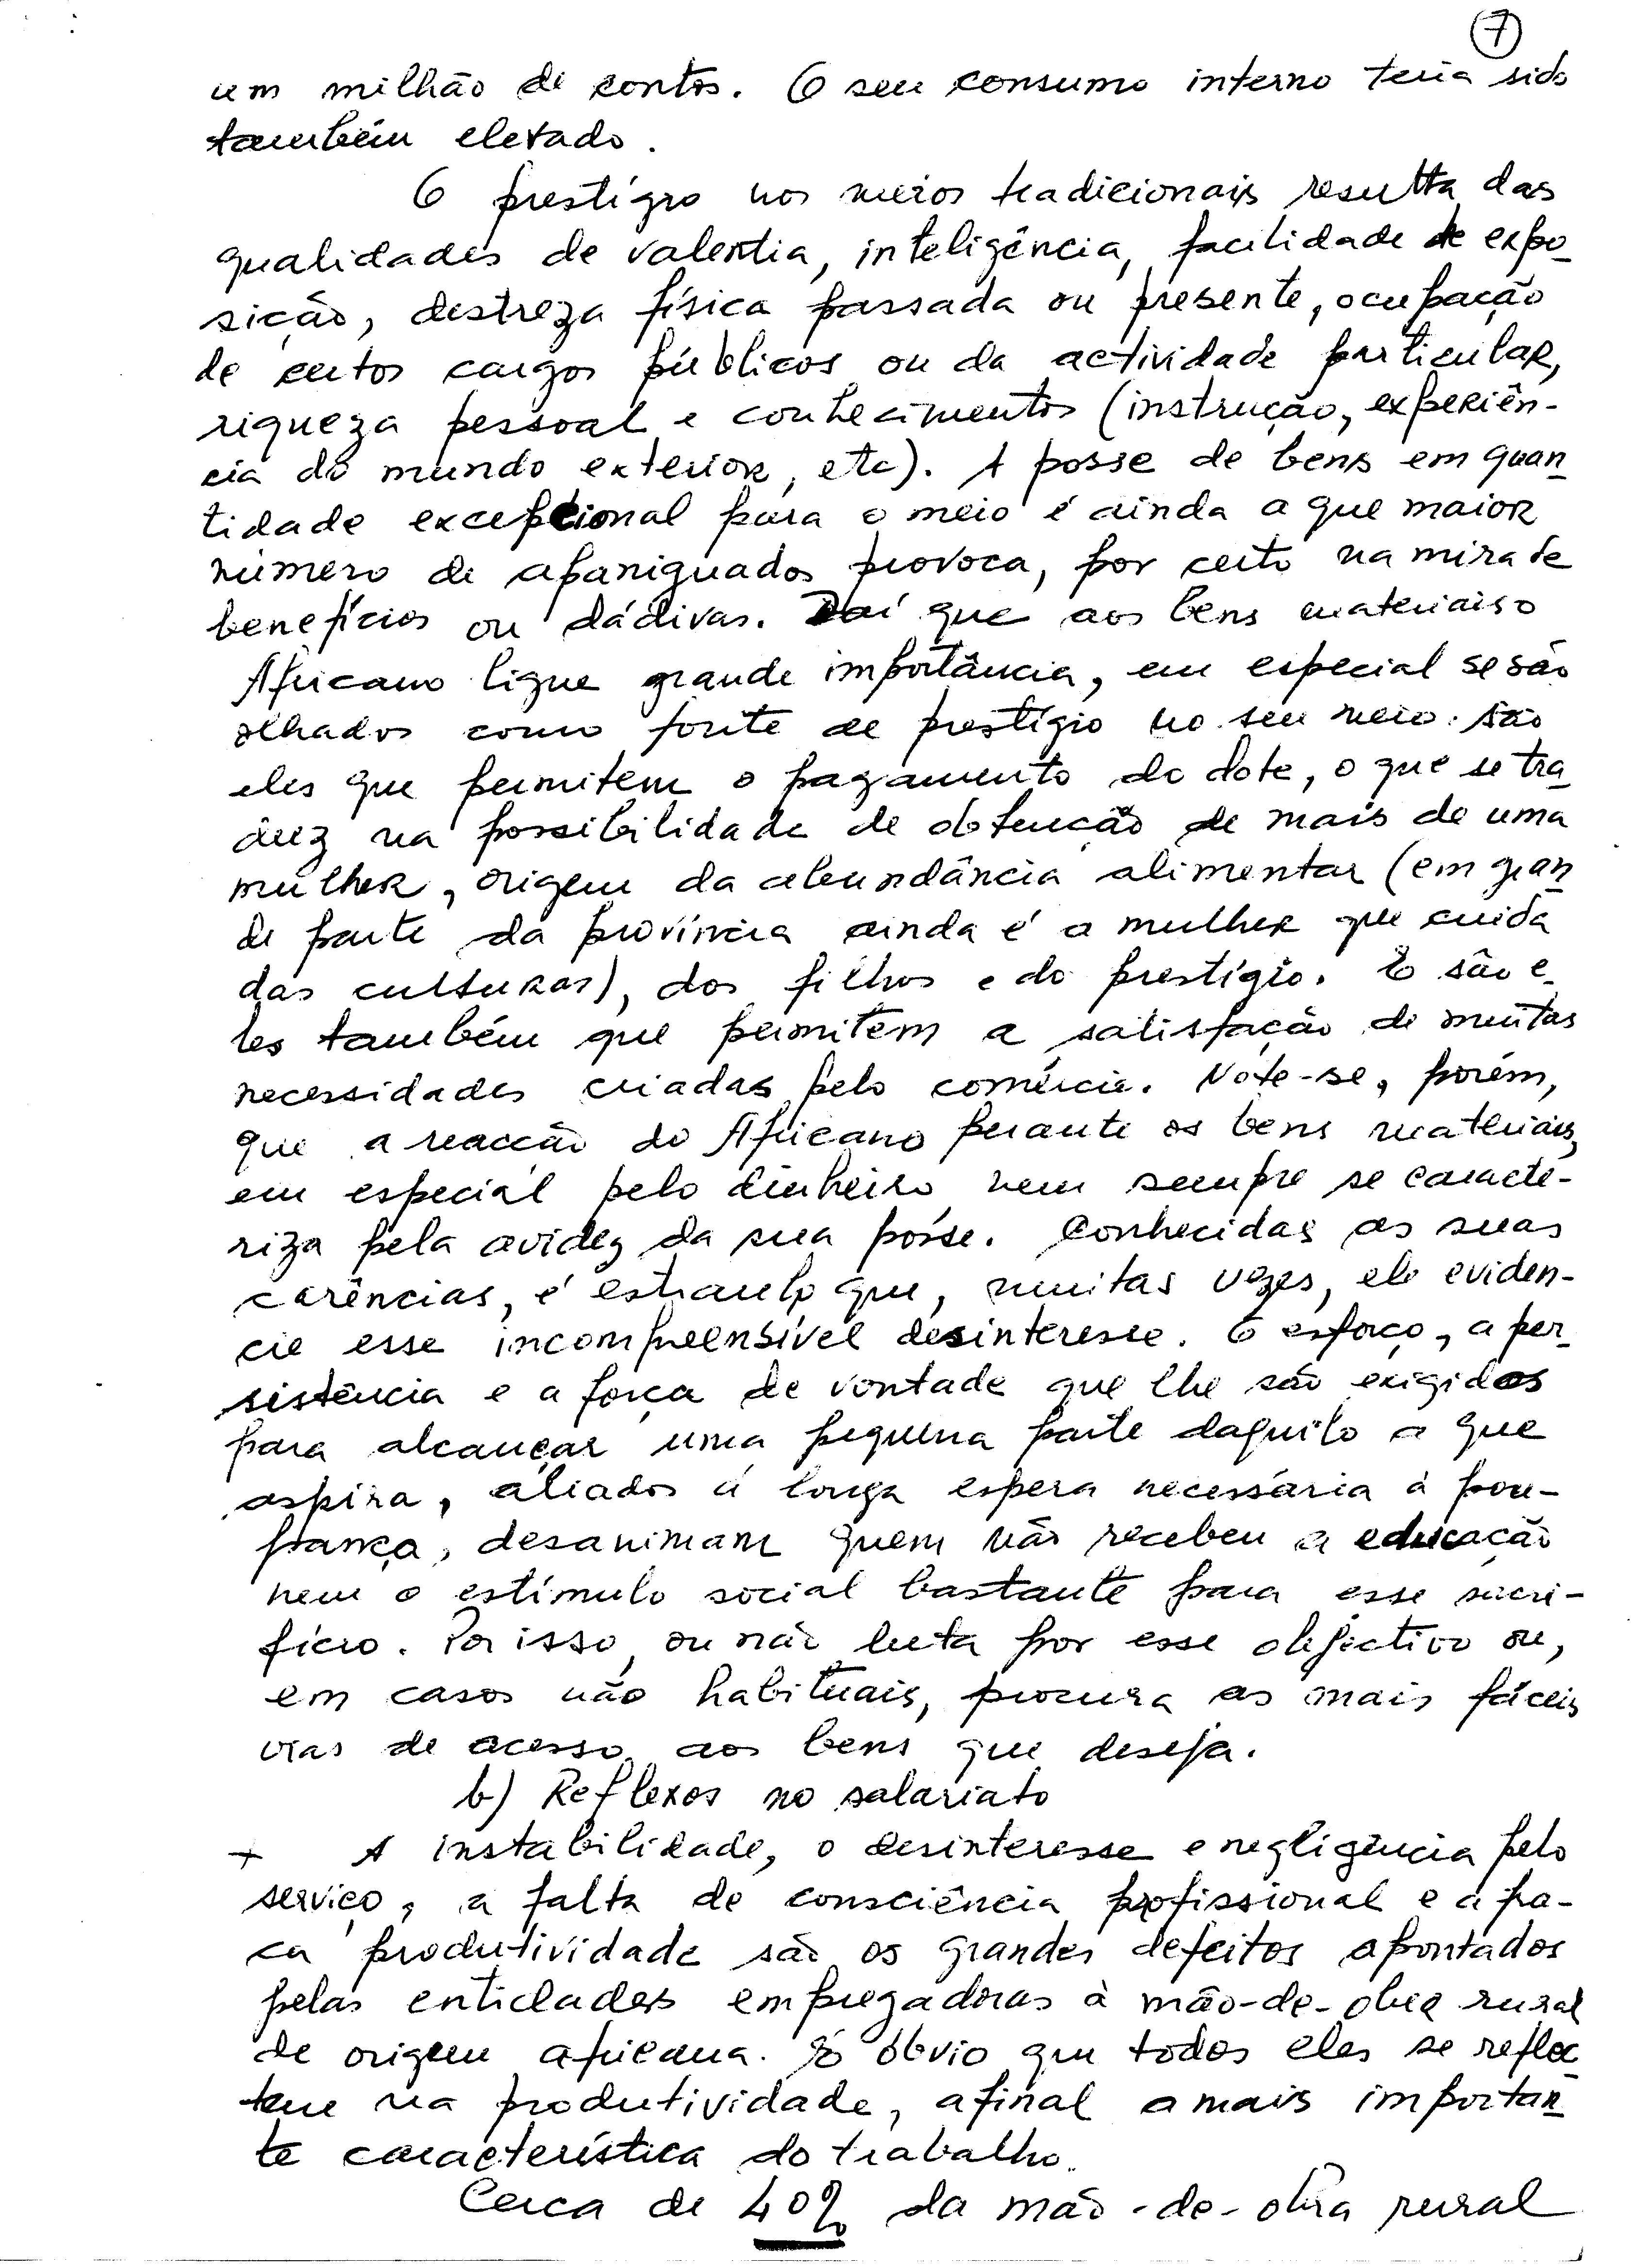 7
um milhão de contos. O seu consumo interno teria sido
também elevado.
O prestígio nos meios tradicionais resulta das
qualidades de valentia, inteligência, facilidade de expo-
sição, destreza física passada ou presente, ocupação
de certos cargos públicos ou da actividade particular,
riqueza pessoal e conhecimentos (instrução, experiên-
cia do mundo exterior, etc). A posse de bens em quan-
tidade excepcional para o meio é ainda a que maior
número de apaniguados provoca, por certo na mira de
benefícios ou dádivas. Daí que aos bens materiais o
Africano ligue grande importância, em especial se são
olhados como fonte de prestígio no seu meio: são
eles que permitem o pagamento do dote, o que se tra-
duz na possibilidade de obtenção de mais de uma
mulher, origem da abundância alimentar (em gran-
de parte da província ainda é a mulher que cuida
das culturas), dos filhos e do prestígio. E são e-
les também que permitem a satisfação de muitas
necessidades criadas pelo comércio. Note-se, porém,
que a reacção do Africano perante os bens materiais,
em especial pelo dinheiro, nem sempre se caracte-
riza pela avidez da sua posse. Conhecidas as suas
carências, é estranho que, muitas vezes, ele eviden-
cie esse incompreensível desinteresse. O esforço, a per-
sistência e a força de vontade que lhe são exigidos
para alcançar uma pequena parte daquilo a que
aspira, aliados à longa espera necessária à pou-
pança, desanimam quem não recebeu a educação
nem o estímulo social bastante para esse sacri-
fício. Por isso, ou não luta por esse objectivo ou,
em casos não habituais, procura as mais fáceis
vias de acesso aos bens que deseja.
b) Reflexos no salariato
+ A instabilidade, o desinteresse e negligência pelo
serviço, a falta de consciência profissional e a fra-
ca produtividade são os grandes defeitos apontados
pelas entidades empregadoras à mão-de-obra rural
de origem africana. É óbvio que todos eles se reflec-
tem na produtividade, afinal a mais importan-
te característica do trabalho.
Cerca de 40% da mão-de-obra rural